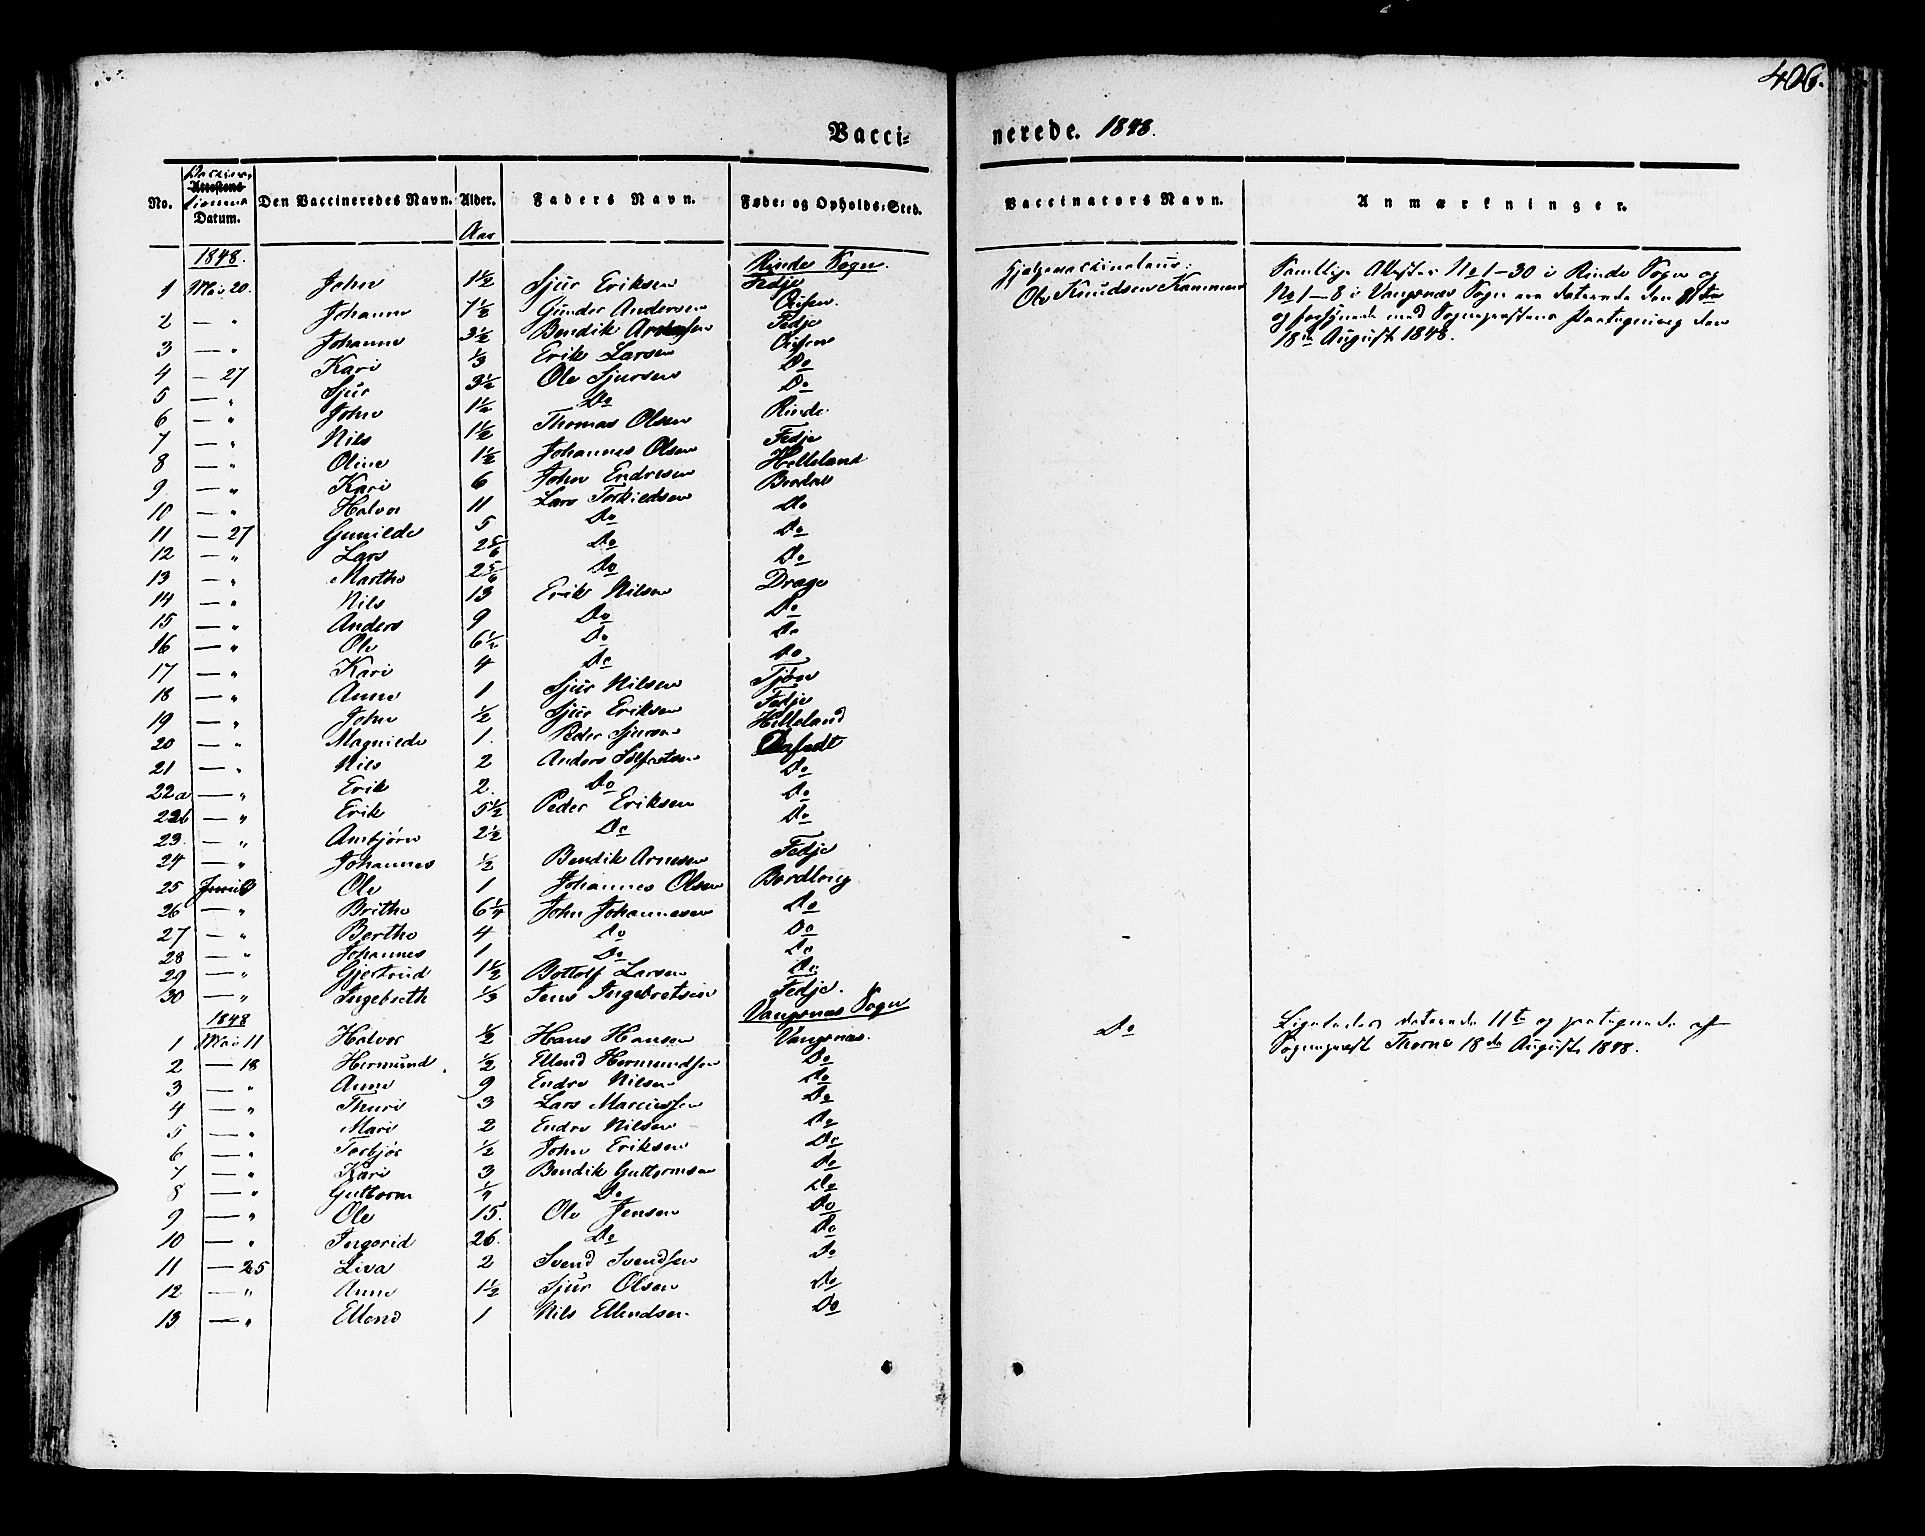 406.
Vacci- nerede. 1848.
No. Vaccinations Attestens Datum. Den Vaccineredes Navn. Alder. Aar Faders Navn. Føde- og Opholds-Sted. Vaccinators Navn. Anmærkninger.
1848. Rinde Sogn.
1 Mai 20. John 1½ Sjur Eriksen Fedje
2 — " Johanne 7½ Gunder Andersen
3 — " Johanne 3½ Bendik Fedje
4 — 27 Kari ⅓ Erik Larsen
5 — " Sjur 3½ Ole Sjursen Do
6 — " John 1½ Do Do
7 — " Nils 1½ Thomas Olsen Rinde
8 — " Oline 1½ Johannes Olsen Fedje
9 — " Kari 6 John Endresen Helleland
10 — " Halvor 11 Lars Torkildsen
11 — 27 Gunilde 5 Do Do
12 — " Lars 2 5/6 Do Do
13 — " Martha 2 5/6 Do Do
14 — " Nils 13 Erik Nilsen Drage
15 — " Anders 9 Do Do
16 — " Ole 6½ Do Do
17 — " Kari 4 Do Do
18 — " Anne 1 Sjur Nilsen Tjørn
19 — " John ½ Sjur Eriksen Fedje
20 — " Magnilde 1. Peder Sjursen Helleland
21 — " Nils 2 Anders
22a — " Erik 2. Do Do
22b — " Erik 5½ Peder Eriksen Do
23. — " Ambjørn 2½ Do Do
24 — " Johannes ½ Bendik Arnesen Fedje
25 Juni Ole 1 Johannes Olsen
26 — " Britha 6¼ John Johannesen Do
27 — " Bertha 4 Do Do
28 — " Johannes 1 Do Do
29 — " Gjertrud 1½ Bottolf Larsen Do
30 — " Ingebreth ⅓ Jens Ingebretsen Fedje.
Hjelpevaccinateur:
Ole Knudsen
Samtlige Attester No 1–30 i Rinde Sogn og
No 1–8 i Vangsnæs Sogn ere daterede den 8de
og forsynede med Sognepræstens Paategning den
18de August 1848.
1848 Vangsnæs Sogn
1 Mai 11 Halvor ½ Hans Hansen Vangsnæs.
2 — 18 Hermund ½ Ellend Hermundsen Do
3 — " Anne 9 Endre Nilsen Do
4 — " Thuri 3 Lars Do
5 — " Mari 2 Endre Nilsen Do
6 — " Torbjør ½ John Eriksen Do
7 — " Kari 3 Bendik Guttormsen Do
8 — " Guttorm Do Do
9 — " Ole 15. Ole Jensen Do
10 — " Ingerid 26. Do Do
11 — 25 Liva 2 Svend Svendsen Do
12 — " Anne 1½ Sjur Olsen Do
13 — " Ellend 1 Nils Ellendsen Do
Do
Ligeledes daterede 11te og paategnede af
Sognepræst 18de August 1848.